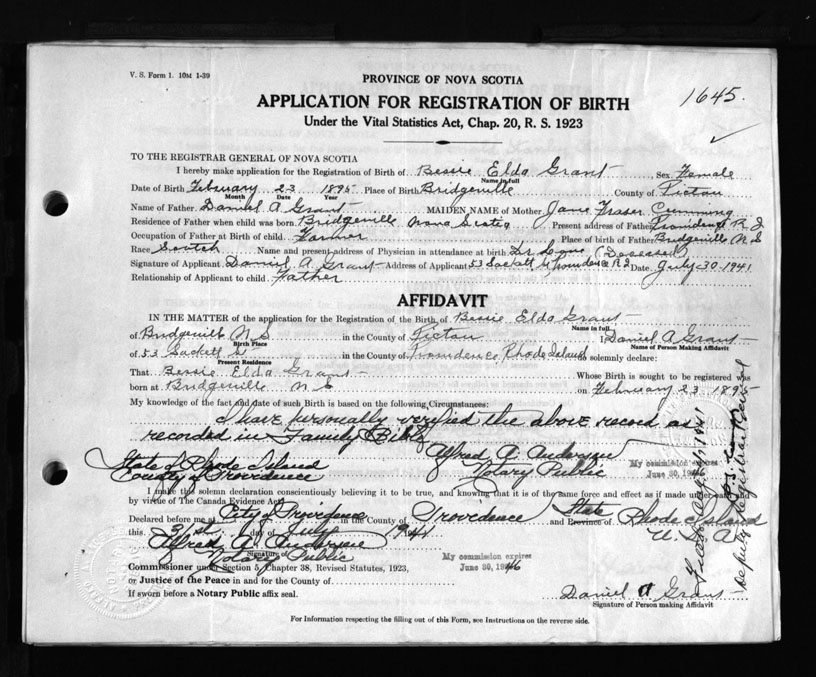 V. S. Form 1. 10M 1-39
PROVINCE OF NOVA SCOTIA
1645.
APPLICATION FOR REGISTRATION OF BIRTH
Under the Vital Statistics Act, Chap. 20, R. S. 1923
TO THE REGISTRAR GENERAL OF NOVA SCOTIA
I hereby make application for the Registration of Birth of Bessie Elda Grant Sex Female
Name in full
Date of Birth February 23 1895 Place of Birth Bridgeville County of Pictou
Month Date Year
Name of Father Daniel A Grant MAIDEN NAME of Mother Jane Fraser Cumming
Residence of Father when child was born Bridgeville Nova Scotia Present address of Father Providence R I
Occupation of Father at Birth of child Farmer Place of birth of Father Bridgeville N S
Race Scotch Name and present address of Physician in attendance at birth Dr (Deceased)
Signature of Applicant Daniel A Grant Address of Applicant 53 Sackett St Providence R I Date July 30 1941
Relationship of Applicant to child Father
AFFIDAVIT
IN THE MATTER of the application for the Registration of the Birth of Bessie Elda Grant
Name in full
of Bridgeville N S in the County of Pictou I Daniel A Grant
Birth Place Name of Person Making Affidavit
of 53 Sackett St in the County of Providence, Rhode Island do solemnly declare:
Present Residence
That Bessie Elda Grant Whose Birth is sought to be registered was
born at Bridgeville N S on February 23 1895
My knowledge of the fact and date of such Birth is based on the following Circumstances:
I have personally verified the above record as
recorded in Family Bible
Alfred A. Anderson
State of Rhode Island Notary Public My commission expires
County of Providence June 30, 1946
I make this solemn declaration conscientiously believing it to be true, and knowing that it is of the same force and effect as if made under oath and
by virtue of The Canada Evidence Act.
Declared before me at City of Providence in the County of Providence State and Province of Rhode Island
this 31st day of July 1941 U. S. A.
Alfred A. Anderson
Signature of
Notary Public
My commission expires
June 30, 1946
Commissioner under Section 5, Chapter 38, Revised Statutes, 1923,
or Justice of the Peace in and for the County of
If sworn before a Notary Public affix seal.
Daniel A Grant
Signature of Person making Affidavit
For Information respecting the filling out of this Form, see Instructions on the reverse side.
Deputy Registrar General